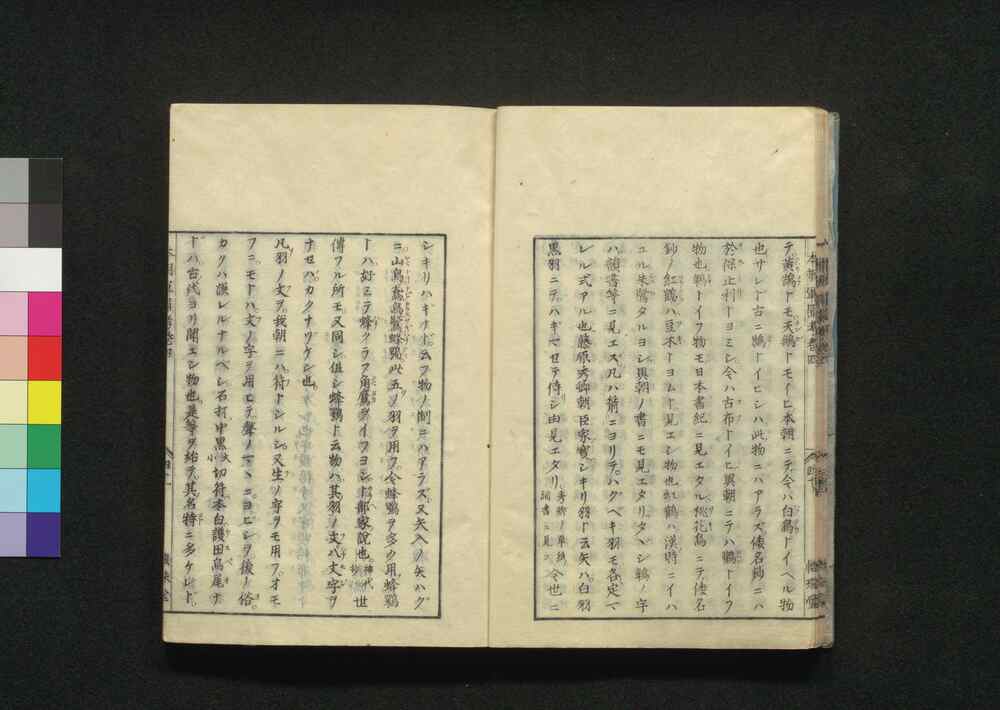 テ黄鵠トモ天鵝トモイヒ本朝ニテ今ハ白鵝トイヘル物
也サレド古ニ鵠トイヒシハ此物ニハアラズ倭名鈔ニハ
於保止利トヨミシ今ハ古布トイヒ異朝ニテハ鸛トイフ
物也鵇トイフ物モ日本書紀ニ見エタル桃花鳥ニテ倭名
鈔ノ紅鶴ハ豆木トヨムト見エシ物也紅鶴ハ漢時ニイハ
ユル朱鷺タルヨシ異朝ノ書ニモ見エタリタヾシ鵇ノ字
ハ韻書等ニ見エズ凡ハ箭ニヨリテハグベキ羽モ各定マ
レル式アル也藤原秀郷朝臣家ニシキリ羽ト云矢ハ白羽
黒羽ニテハギマゼテ侍シ由見エタリ 今世ニ
シキリハギナト云フ物ノ制ニハアラズ又矢ノ矢ハハグ
ニ山鳥 此五ノ羽ヲ用フ今蜂鷹ヲ多ク用蜂鷹
トハ好ミテ蜂クラフ角鷹ヲイフヨシト部家説也神代 世
傳フル所モ又同シ但シ蜂鷹ト云物ハ其羽ノ文八文字ヲ
ナセハカクナヅケシ也
凡羽ノ文ヲ我朝ニハ符トシルシ又生ノ字ヲモ用フオモ
フニモトハ文ノ字ヲ用ヒテ聲ノマヽニヨビシヲ後ノ俗
カクハ誤レルナルベシ石打中黒大切符本白護田鳥尾ナ
トハ古代ヨリ聞エシ物也是等ヲ始テ其名特ニ多ケレド